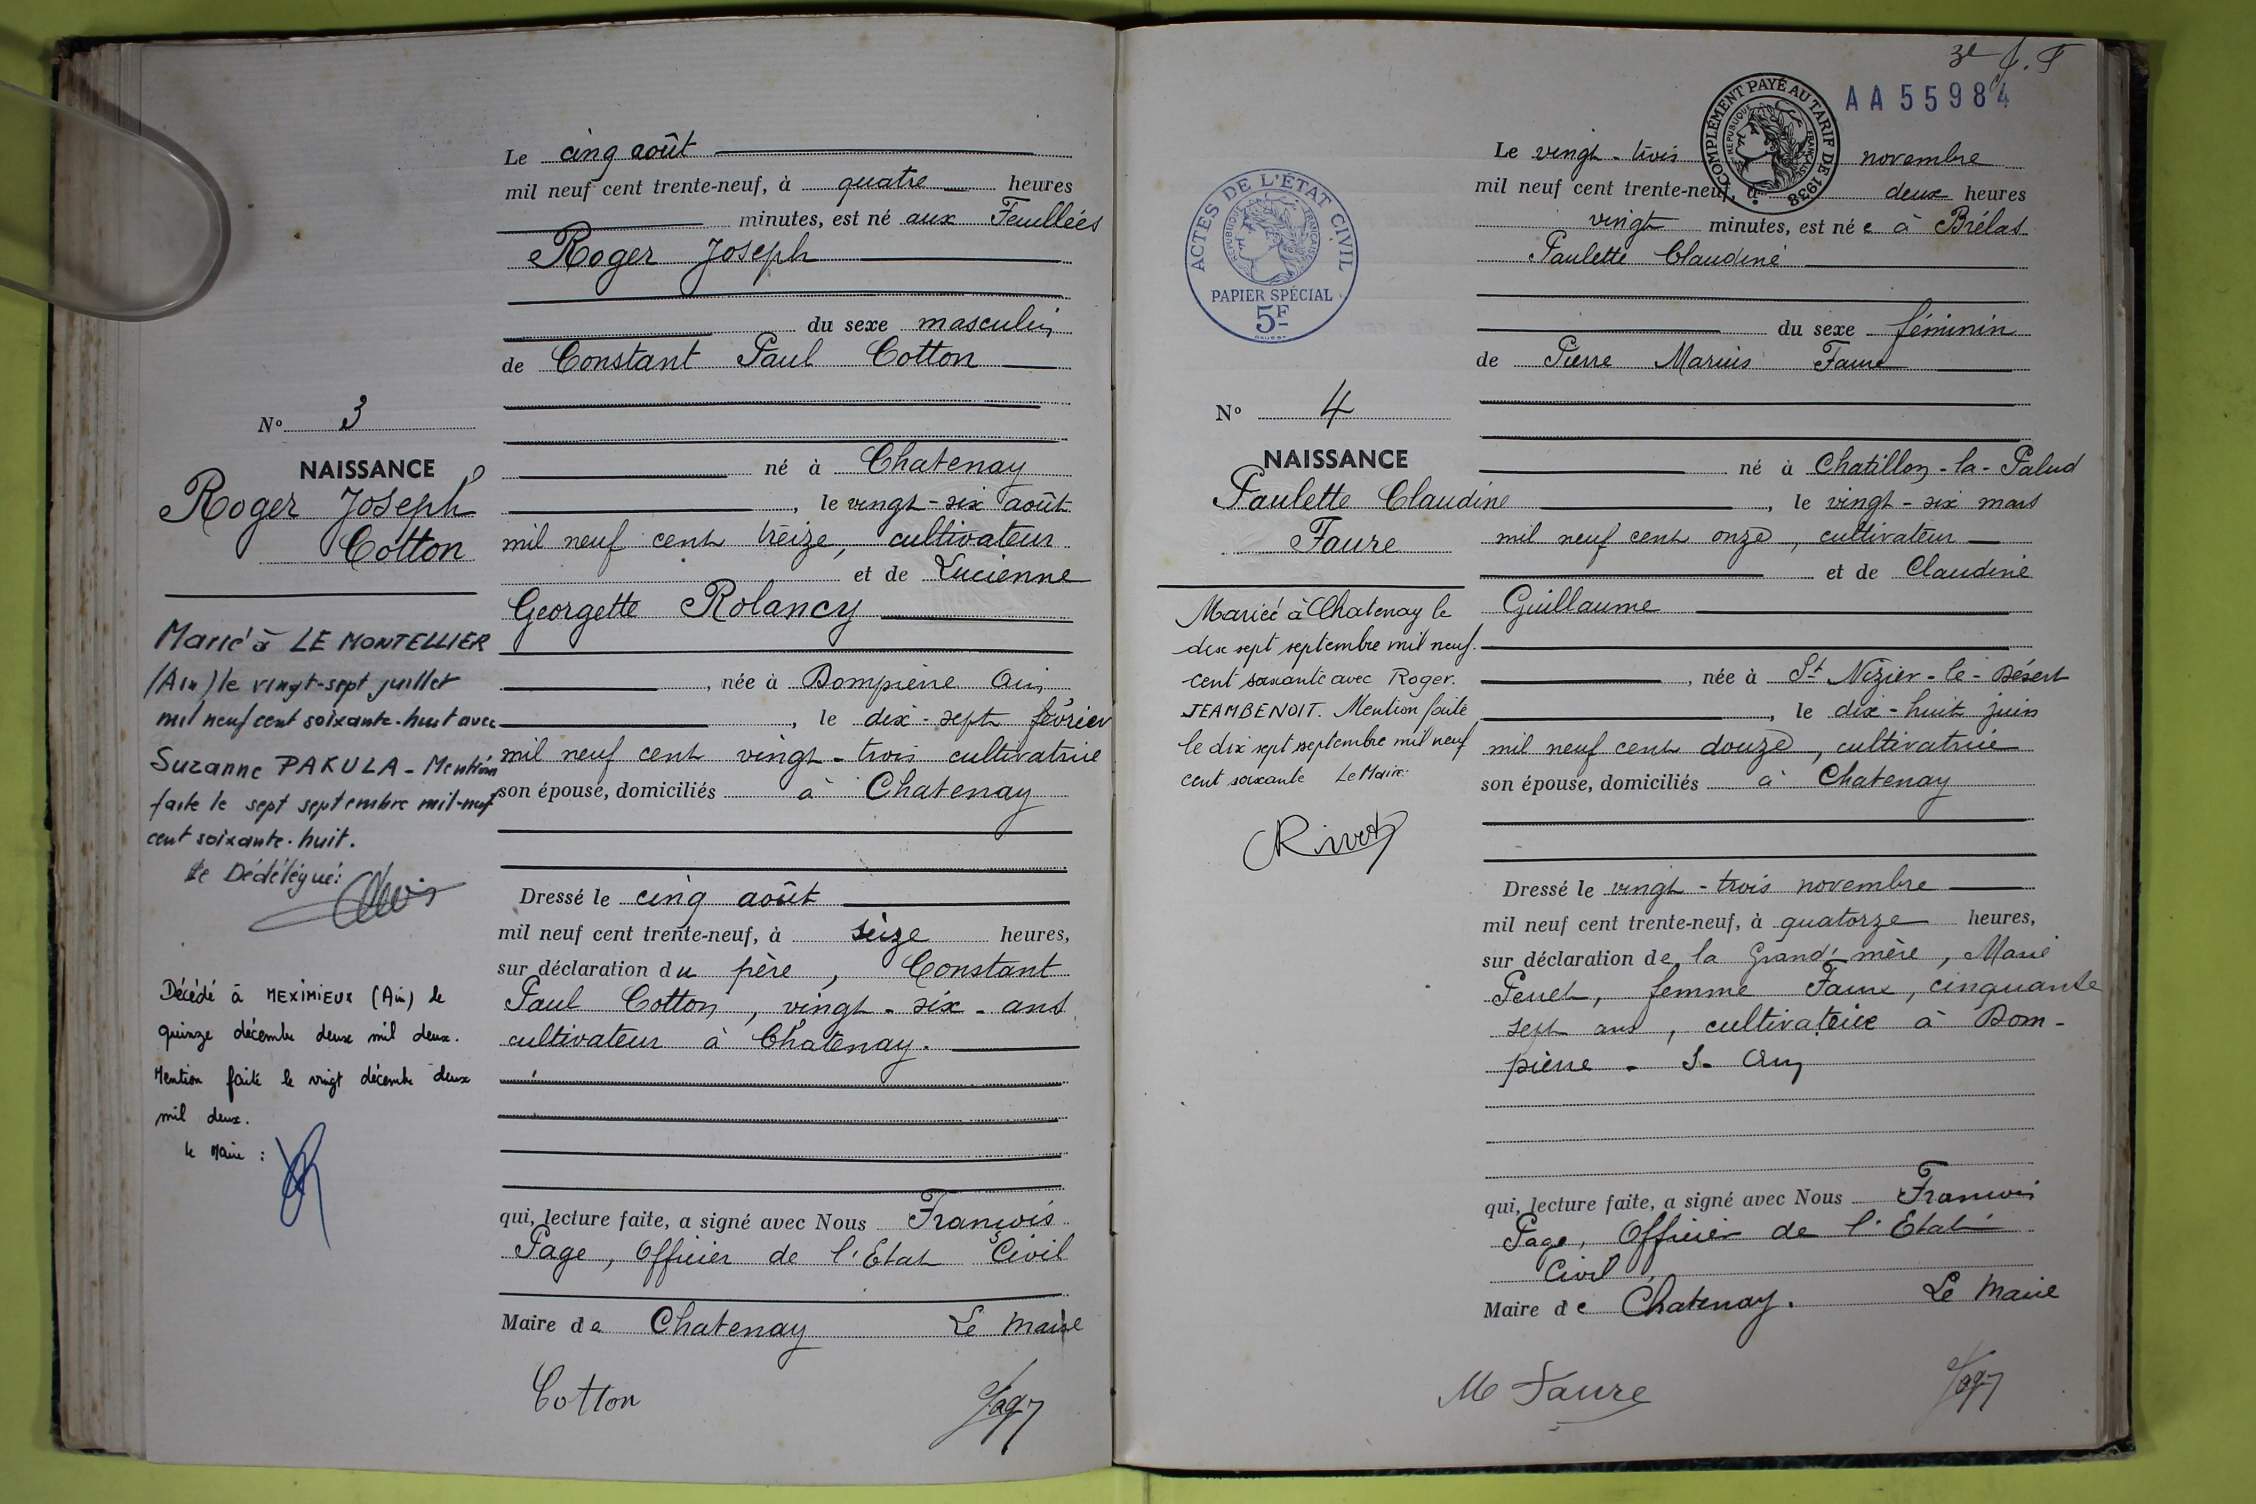 Le cinq août
mil neuf cent trente-neuf, à quatre heures
minutes, est né aux Feuillées
Roger Joseph
du sexe masculin
de Constant Paul Cotton
né à Chatenay
, le vingt-six août
mil neuf cent treize, cultivateur
et de Lucienne
Georgette Rolancy
, née à Dompierre Ain
, le dix-sept février
mil neuf cent vingt-trois cultivatrice
son épouse, domiciliés à Chatenay
Dressé le cinq août
mil neuf cent trente-neuf, à seize heures,
sur déclaration du père, Constant
Paul Cotton, vingt-six-ans
cultivateur à Chatenay.
qui, lecture faite, a signé avec Nous François
Page, Officier de l'Etat Civil
Maire de Chatenay Le Maire
Cotton
Nº 3
NAISSANCE
Roger Joseph
Cotton
Marié à LE MONTELLIER
(Ain) le vingt-sept juillet
mil neuf cent soixante-huit avec
Suzanne PAKULA - Mention
faite le sept septembre mil-neuf
cent soixante-huit.
Le Dédélégué:
Décédé à MEXIMIEUX (Ain) le
quinze décembre deux mil deux.
Mention faite le vingt décembre deux
mil deux.
Le Maire :
AA55984
COMPLÉMENT PAYÉ AU TARIF DE 1938
RÉPUBLIQUE FRANÇAISE
Le vingt-trois novembre
mil neuf cent trente-neuf, à deux heures
vingt minutes, est née à Brélas
Paulette Claudine
du sexe féminin
de Pierre Marius Faure
né à Chatillon-la-Palud
, le vingt-six mars
mil neuf cent onze, cultivateur
et de Claudine
Guillaume
, née à St Nizier-le-Désert
, le dix-huit juin
mil neuf cent douze, cultivatrice
son épouse, domiciliés à Chatenay
Dressé le vingt-trois novembre
mil neuf cent trente-neuf, à quatorze heures,
sur déclaration de la Grand'mère, Marie
femme Faure, cinquante
sept ans, cultivatrice à Dom-
pierre -
qui, lecture faite, a signé avec Nous François
Page, Officier de l'Etat
Civil
Maire de Chatenay. Le Maire
M Faure
ACTES DE L'ÉTAT CIVIL
RÉPUBLIQUE FRANÇAISE
PAPIER SPÉCIAL
5F
Nº 4
NAISSANCE
Paulette Claudine
Faure
Mariée à Chatenay le
dix sept septembre mil neuf
cent soixante avec Roger
JEAMBENOIT. Mention faite
le dix sept septembre mil neuf
cent soixante Le Maire
Rivet